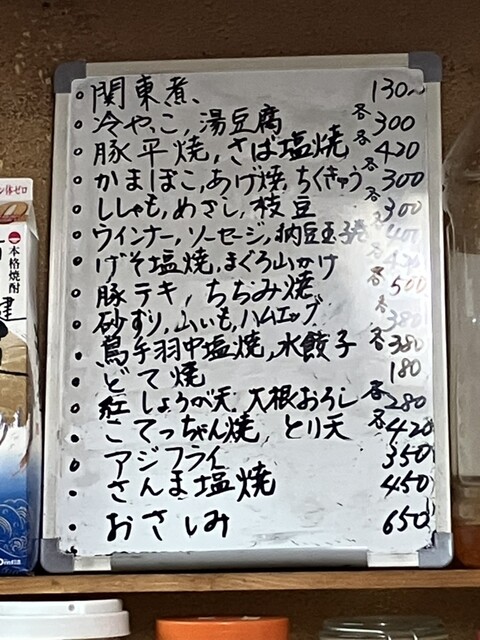 関東煮、 130〜
冷やっこ,湯豆腐 各300
豚平焼,さば塩焼 各420
かまぼこ,あげ焼,ちくきゅう 各300
ししゃも,めざし,枝豆 各300
ウィンナー,ソーセージ,納豆玉子 各400
げそ塩焼,まぐろ山かけ 各
豚テキ,ちぢみ焼 各500
砂ずり,山いも,ハムエッグ 各380
手羽中塩焼,水餃子 各380
どて焼 180
紅しょうが天,大根おろし 各280
こてっちゃん焼,とり天 各420
アジフライ 350
さんま塩焼 450
おさしみ 650
本格焼酎